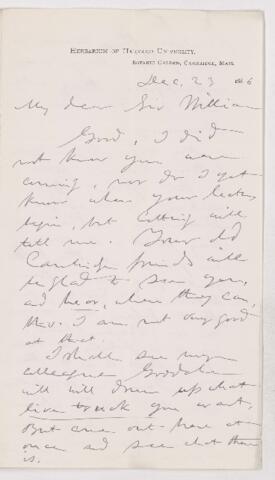 HERBARIUM OF HARVARD UNIVERSITY.
BOTANIC GARDEN, CAMBRIDGE, MASS.
Dec. 23
My dear Sir William
Good, I did
not know you were
coming, nor do I yet
know when your lectures
begin, but will
tell me. Your old
Cambridge friends will
be glad to see you,
and hear, when they can,
tho. I am not very good
at that.
I shall see my
colleague Goodale
will up what
you want.
But come out here at
once and see what there
is.